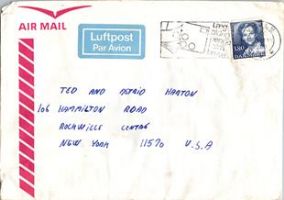 AIR MAIL
Luftpost
Par Avion
180
DANMARK
TED AND ASTRID HARTON
106 HAMILTON ROAD
ROCKVILLE CENTRE
NEW YORK 11570 U.S.A